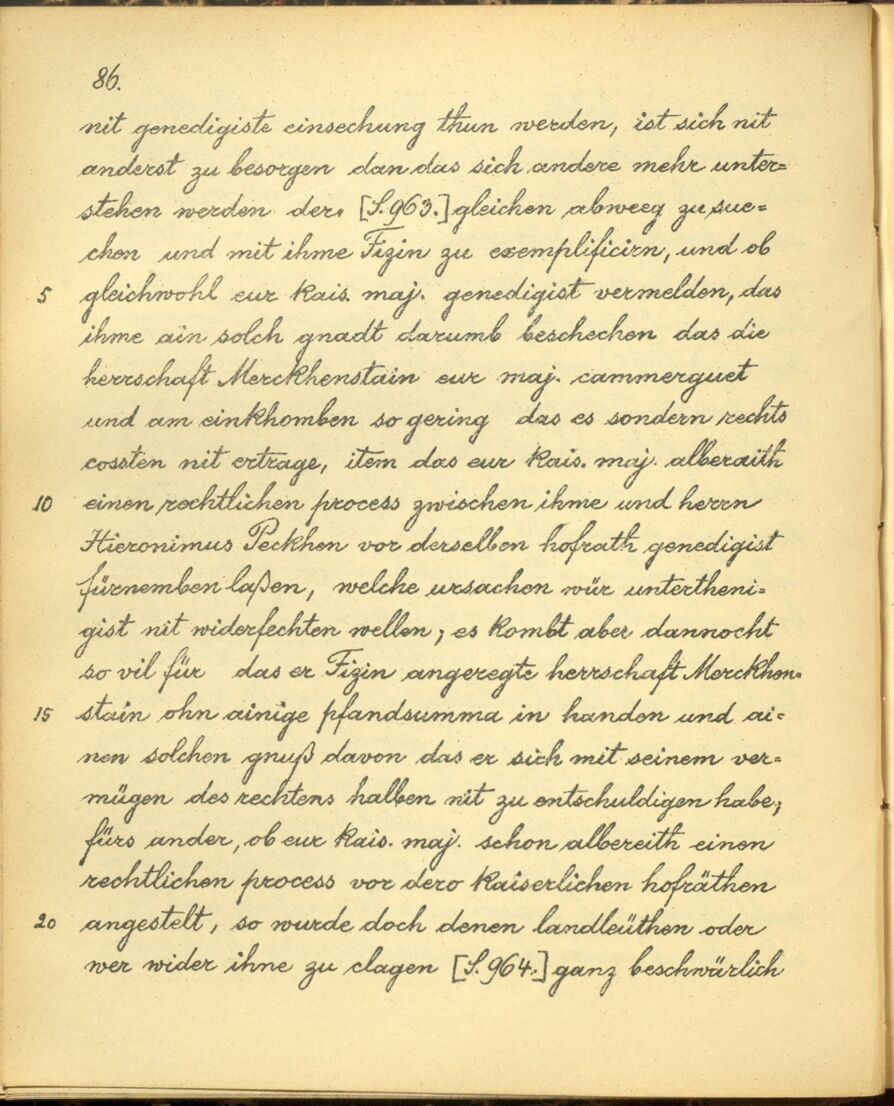 86.
nit genedigiste einsechung thun werden, ist sich nit
anderst zu besorgen dan das sich andere mehr unter=
stehen werden der. [S. 963.] gleichen abweeg zu sue=
chen und mit ihme Fizin zu exemplificirn, und ob
5 gleichwohl eur kais. maj. genedigist vermelden, das
ihme ain solch gnadt darumb beschechen das die
herrschaft Merckhenstain eur maj. cammerguet
und am einkhomben so gering das es sondern rechts
cossten nit ertrage, item das eur kais. maj. alberaith
10 einen rechtlichen process zwischen ihme und herrn
Hieronimus Peckhen vor derselben hofrath genedigist
fürnemben laßen, welche ursachen wür untertheni=
gist nit widerfechten wellen; es kombt aber dannocht
so vil für das er Fizin angeregte herrschaft Merckhen=
15 stain ohn ainige pfandsumma in handen und ai=
nen solchen gnuß davon das er sich mit seinem ver=
mügen des rechtens halben nit zu entschuldigen habe;
fürs ander, ob eur kais. maj. schon albereith einen
rechtlichen process vor dero kaiserlichen hofräthen
20 angestelt, so wurde doch denen landleüthen oder
wer wider ihne zu clagen [S. 964.] ganz beschwärlich